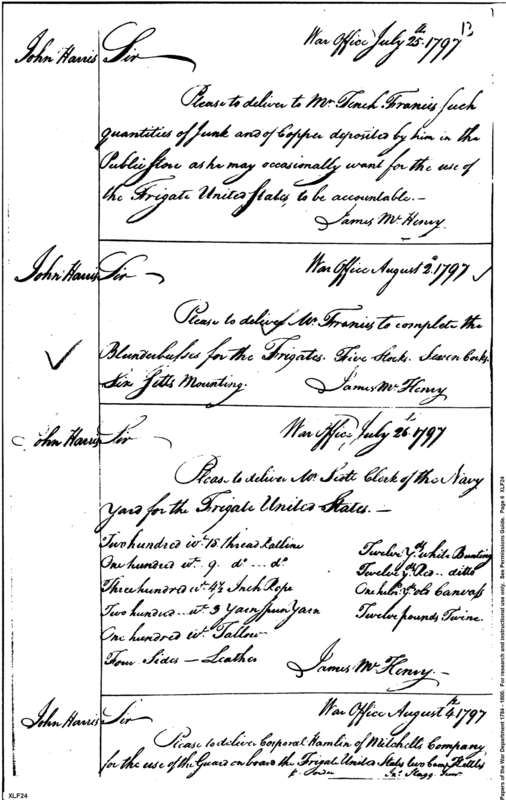 13
John Harris Sir War Office July 25th. 1797
Please to deliver to Mr. Tench Francis Such
quantities of Junk and of Copper deposited by him in the
Public Store as he may occasionally want for the use of
the Frigate United States, to be accountable.—
James McHenry.
John Harris Sir — War Office August 2d. 1797
Please to deliver Mr. Francis to complete the
Blunderbusses for the Frigates. Five Stocks. Seven Cocks.
Six Setts Mounting. James McHenry
John Harris Sir War Office, July 26th. 1797
Please to deliver Mr. Clerk of the Navy
Yard for the Frigate United States.—
Two hundred wt. 15 thread Ratline
One hundred wt. 9. do... do.
Three hundred wt. 4½ Inch Rope
Two hundred.. wt. 3 Yarn Spun Yarn
One hundred wt. Tallow
Four Sides — Leather
Twelve Yds. white Bunting
Twelve Yds. Red.. ditto
One hundd. Yds. old Canvass
Twelve pounds Twine.
James McHenry.—
John Harris Sir War Office August 4th. 1797
Please to deliver Corporal Hamlin of Mitchell's Company,
for the use of the Guard on board the Frigate United States two Camp Kettles
Jno. Stagg Junr.
XLF24
Papers of the War Department 1784 - 1800. For research and instructional use only. See Permissions Guide. Page 6 XLF24